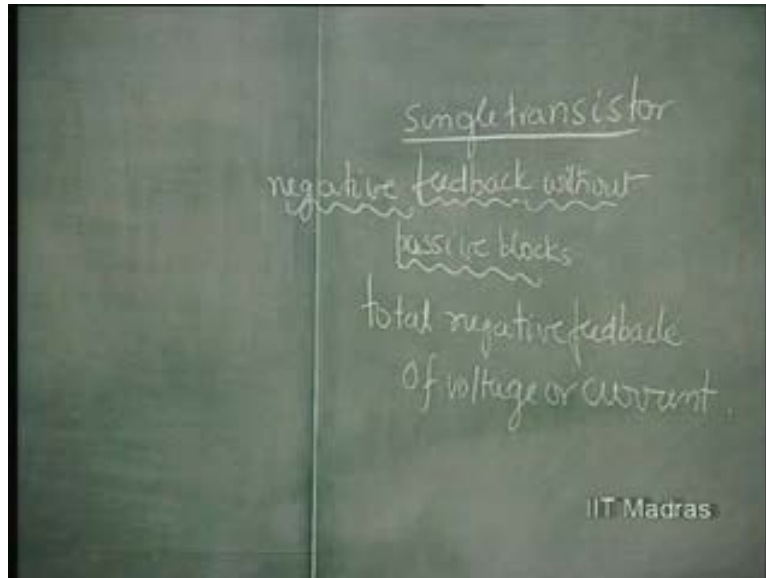 single transistor
negative feedback without
passive blocks
total negative feedback
of voltage or current.
IIT Madras